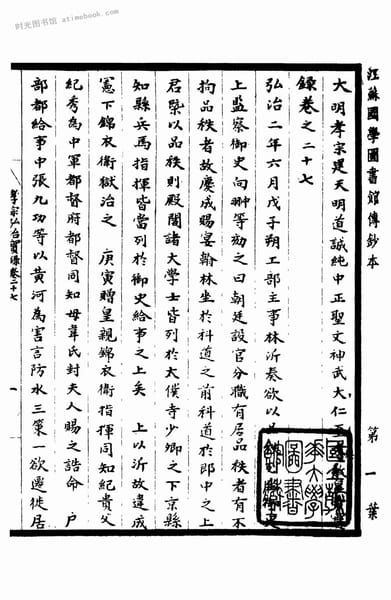 时光图书馆 atimebook.com
江蘇國學圖書館傳鈔本
第一葉
大明孝宗建天明道誠純中正聖文神武大仁至德敬皇帝實
錄卷之二十七
弘治二年六月戊子朔工部主事林沂奏欲以品
上監察御史向翀等劾之曰朝廷設官分職有居品秩者有不
拘品秩者故慶成賜宴翰林坐於科道之前科道於郎中之上
君槩以品秩則殿閣諸大學士皆列於太僕寺少卿之下京縣
知縣兵馬指揮皆當列於御史給事之上矣 上以沂故違成
憲下錦衣衛獄治之 庚寅贈皇親錦衣衛指揮同知紀貴父
紀秀為中軍都督府都督同知母韋氏封夫人賜之誥命 户
部都給事中張九功等以黃河為害言防水三策一欲遷徙居
孝宗弘治實錄卷二十七
一